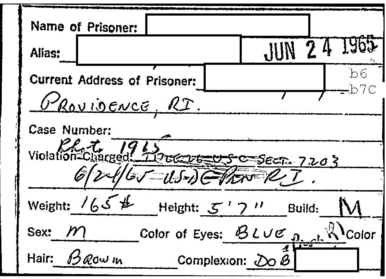 Name of Prisoner:
JUN 24 1965
Alias:
b6
b7C
Current Address of Prisoner:
PROVIDENCE, RI.
Case Number:
Photo 1965
Violation Charged: TITLE 26 USC SECT. 7203
6/24/65 R.I.
Weight: 165# Height: 5'7" Build: M
Sex: M Color of Eyes: BLUE Color
Hair: Brown Complexion: DOB